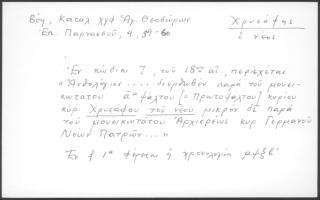 Βέη, Καταλ χγφ Ἁγ. Θεοδώρων
Χρυσάφης
Ἐπ. Παρνασσοῦ, 9, 59-60
ὁ νέος
Ἐν κώδικι 7, τοῦ 18ου αἰ., περιέχεται
«Ἀνθολόγιον .... διορθωθὲν παρὰ τοῦ μουσι-
κωτάτου α'ου ψάλτου [= Πρωτοψάλτου] κυρίου
κὺρ Χρυσάφου τοῦ νέου μικρὸν δὲ παρὰ
τοῦ μουσικωτάτου Ἀρχιερέως κὺρ Γερμανοῦ
Νέων Πατρῶν...»
Ἐν f. 1α φέρεται ἡ χρονολογία αψξβ'